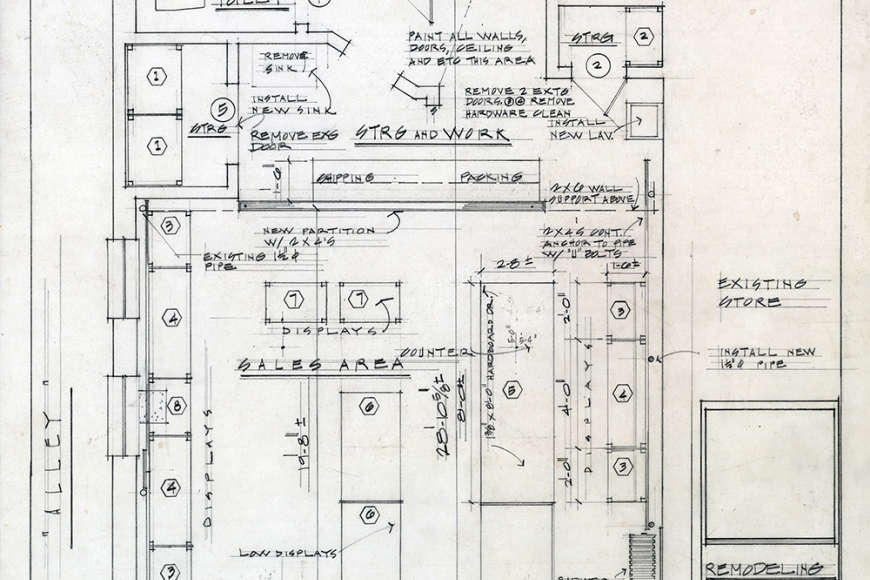 TOILET
1
PAINT ALL WALLS,
DOORS, CEILING
AND ETC THIS AREA
STRG
2
2
REMOVE
SINK
1
INSTALL
NEW SINK
5
STRG
1
REMOVE EXG
DOOR
REMOVE 2 EXTG
DOORS. REMOVE
HARDWARE CLEAN
INSTALL
NEW LAV.
STRG AND WORK
1'-6"
SHIPPING
PACKING
2X6 WALL
SUPPORT ABOVE
NEW PARTITION
W/ 2X4'S
2X4S CONT.
ANCHOR TO PIPE
W/ "U" BOLTS
3
EXISTING 1½"∅
PIPE
2'-8"±
1'-6"±
EXISTING
STORE
7
7
DISPLAYS
4
3
2'-0"
COUNTER
SALES AREA
INSTALL NEW
1½"∅ PIPE
8
6
5
4
4'-0"
DISPLAYS
28'-10 5/8"±
8'-0"±
19'-8"±
DISPLAYS
"ALLEY"
3
2'-0"
4
6
LOW DISPLAYS
3
REMODELING